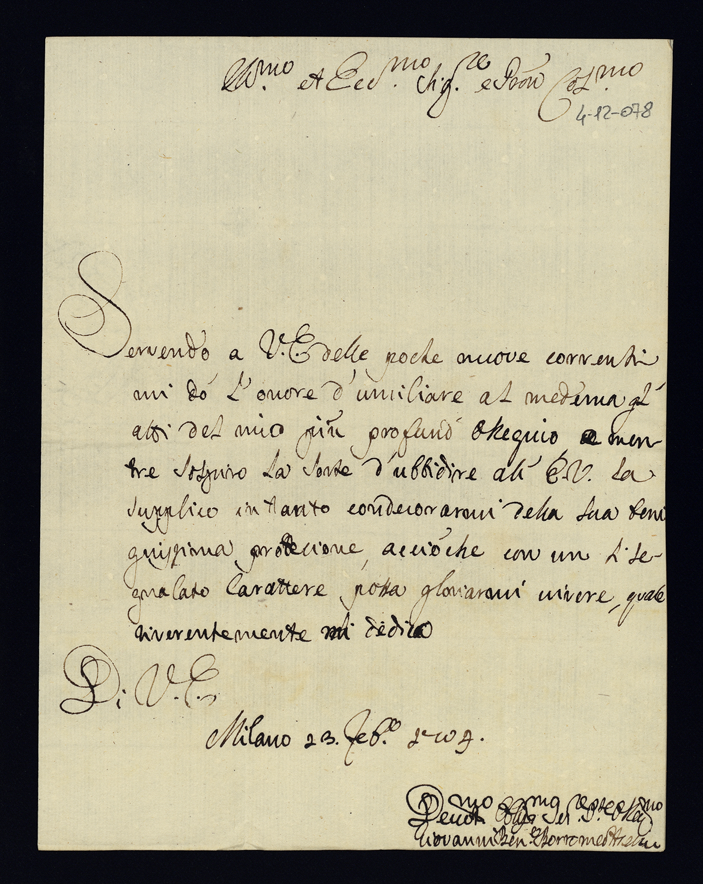 Ill.mo et Ecc.mo Sig.re e Pron Col.mo
4-12-078
Servendo a V.E. delle poche nuove correnti
mi dò l'onore d'umiliare al medema gl'
atti del mio più profund' Ossequio e men-
tre sospiro la sorte d'ubbidire all' E.V. la
supplico intanto condecorarmi della sua beni
gnissima protecione, acciòche con un sì se-
gnalato Carattere possa gloriarmi vivere, quale
riverentemente mi dedico
Di V.E.
Milano 23. Feb.o
Devot.mo Oblig.mo Ser.re
Giovanni Ben. Borromeo Arese